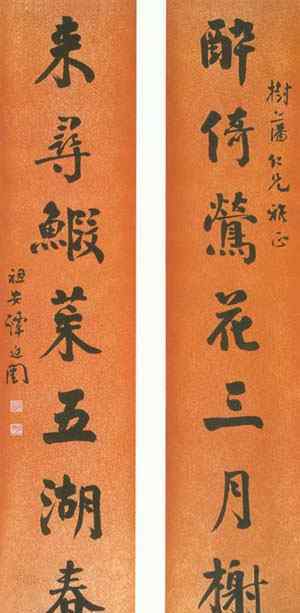 樹藩仁兄雅正
醉倚鶯花三月榭
来尋鰕菜五湖春
祖安譚延闓